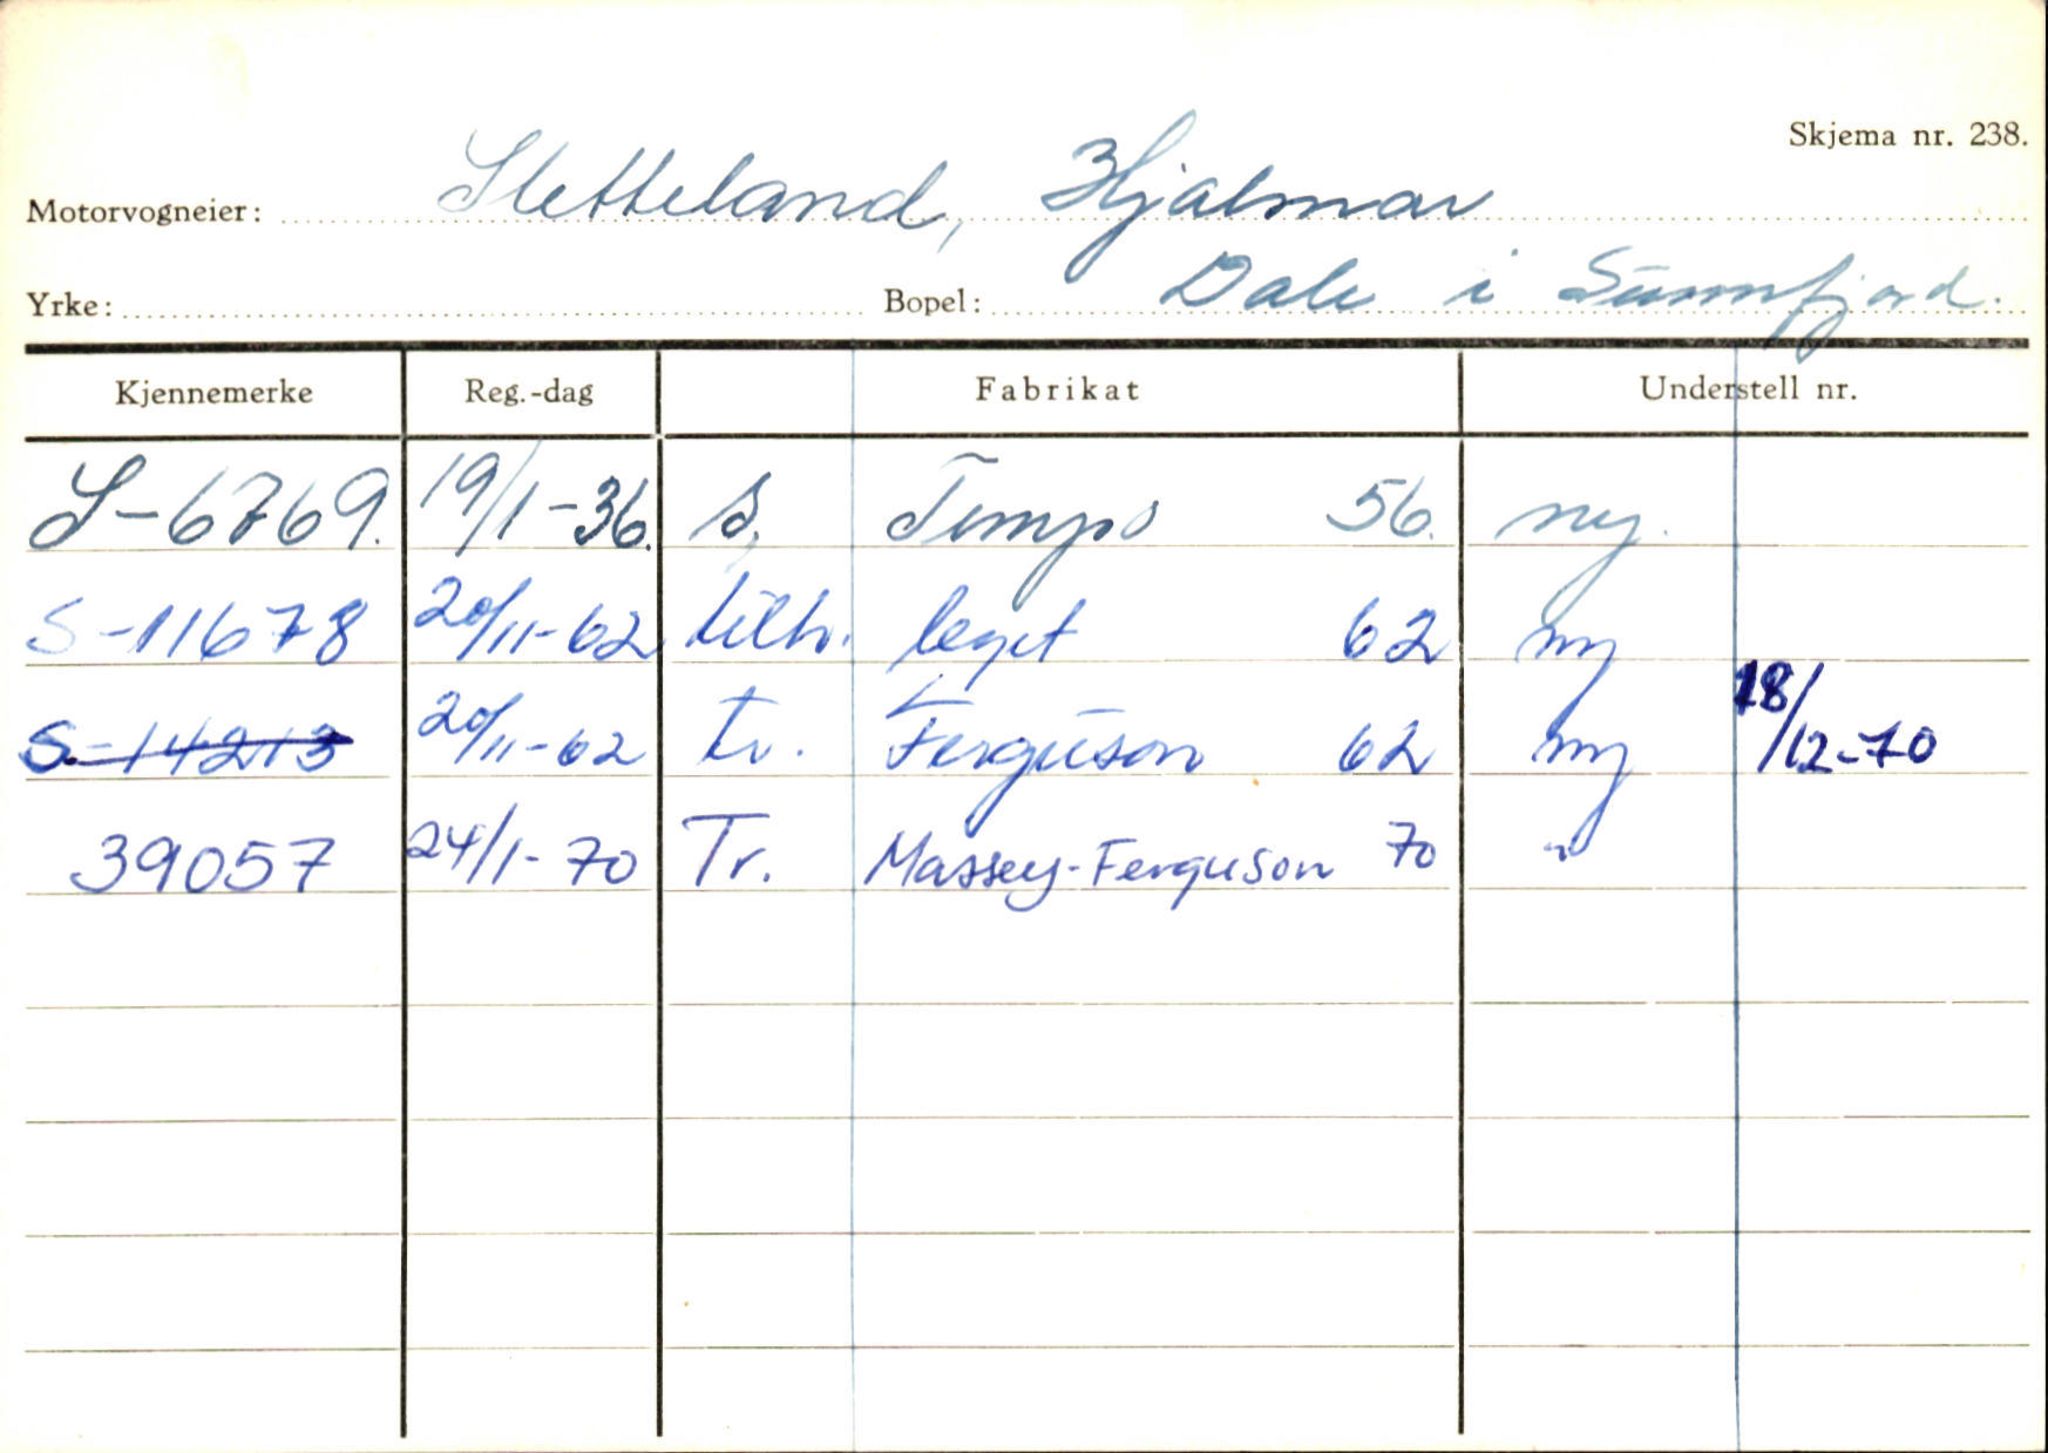 Skjema nr. 238.
Motorvogneier: Sletteland, Hjalmar
Yrke: Bopel: Dale i Sunnfjord.
Kjennemerke Reg.-dag Fabrikat Understell nr.
S-6769. 19/1-36. s. Tempo 56. ny.
S-11678 20/11-62 tilh. leget 62 ny
S-14213 20/11-62 tr. Ferguson 62 ny 18/12-70
39057 24/1-70 Tr. Massey-Ferguson 70 "